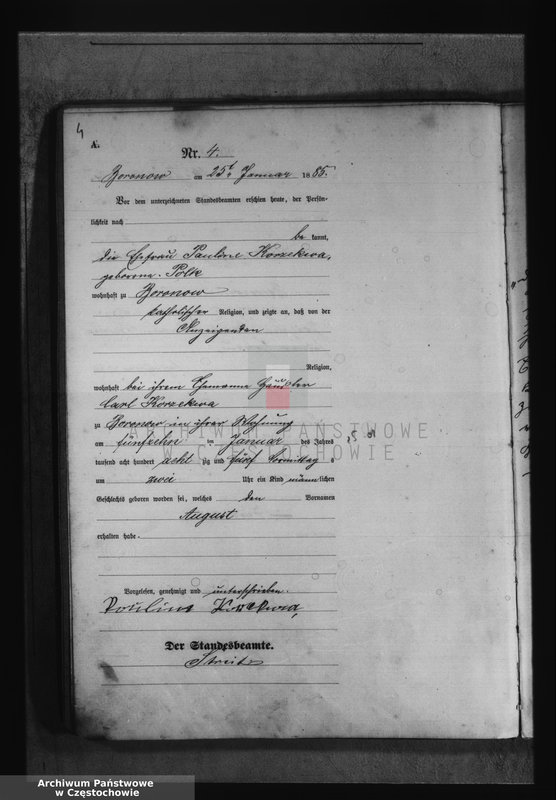 4
A.
Nr. 4.
Boronow am 25t Januar 1885.
Vor dem unterzeichneten Standesbeamten erschien heute, der Persön-
lichkeit nach
be kannt,
die Ehefrau Pauline Korzekwa,
geborene Polk
wohnhaft zu Boronow
katholischer Religion, und zeigte an, daß von der
Anzeigenden
Religion,
wohnhaft bei ihrem Ehemanne Häusler
Carl Korzekwa
zu Boronow in ihrer Wohnung
am fünfzehn ten Januar des Jahres
tausend acht hundert acht zig und fünf Vormittag s
um zwei Uhr ein Kind männ lichen
Geschlechts geboren worden sei, welches den Vornamen
August
erhalten habe.
Vorgelesen, genehmigt und unterschrieben.
Pauline Korzekwa,
Der Standesbeamte.
ARCHIWUM PAŃSTWOWE
W CZĘSTOCHOWIE
Archiwum Państwowe
w Częstochowie